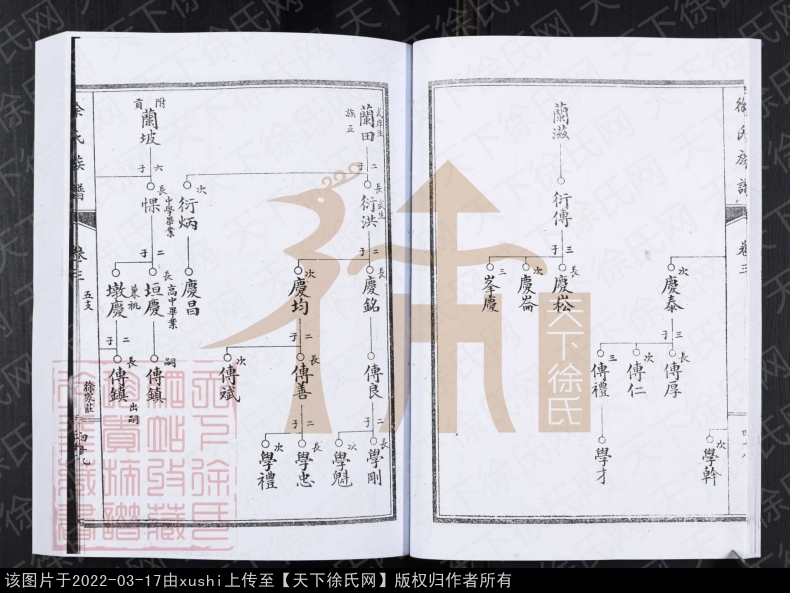 徐氏族譜
卷三
蘭滋
衍傳
三子
長 慶崧
次 慶崙
三 峯慶
次 慶泰
三子
長 傳厚
次 傳仁
三 傳禮
學才
次 學幹
武庠生 族正 蘭田
二子
長 武生 衍洪
次 衍炳
慶昌
二子
長 慶銘
次 慶均
傳良
二子
長 學剛
次 學魁
二子
長 傳善
次 傳斌
二子
長 學忠
次 學禮
附貢 蘭坡
六子
長 惈 中學畢業
二子
長 垣慶 高中畢業
次 墩慶 兼祧
嗣 傳鎮
二子
長 傳鎮 出嗣
徐氏族譜
卷三
五支
徐家莊
天下徐氏
天下徐氏网
该图片于2022-03-17由xushi上传至【天下徐氏网】版权归作者所有